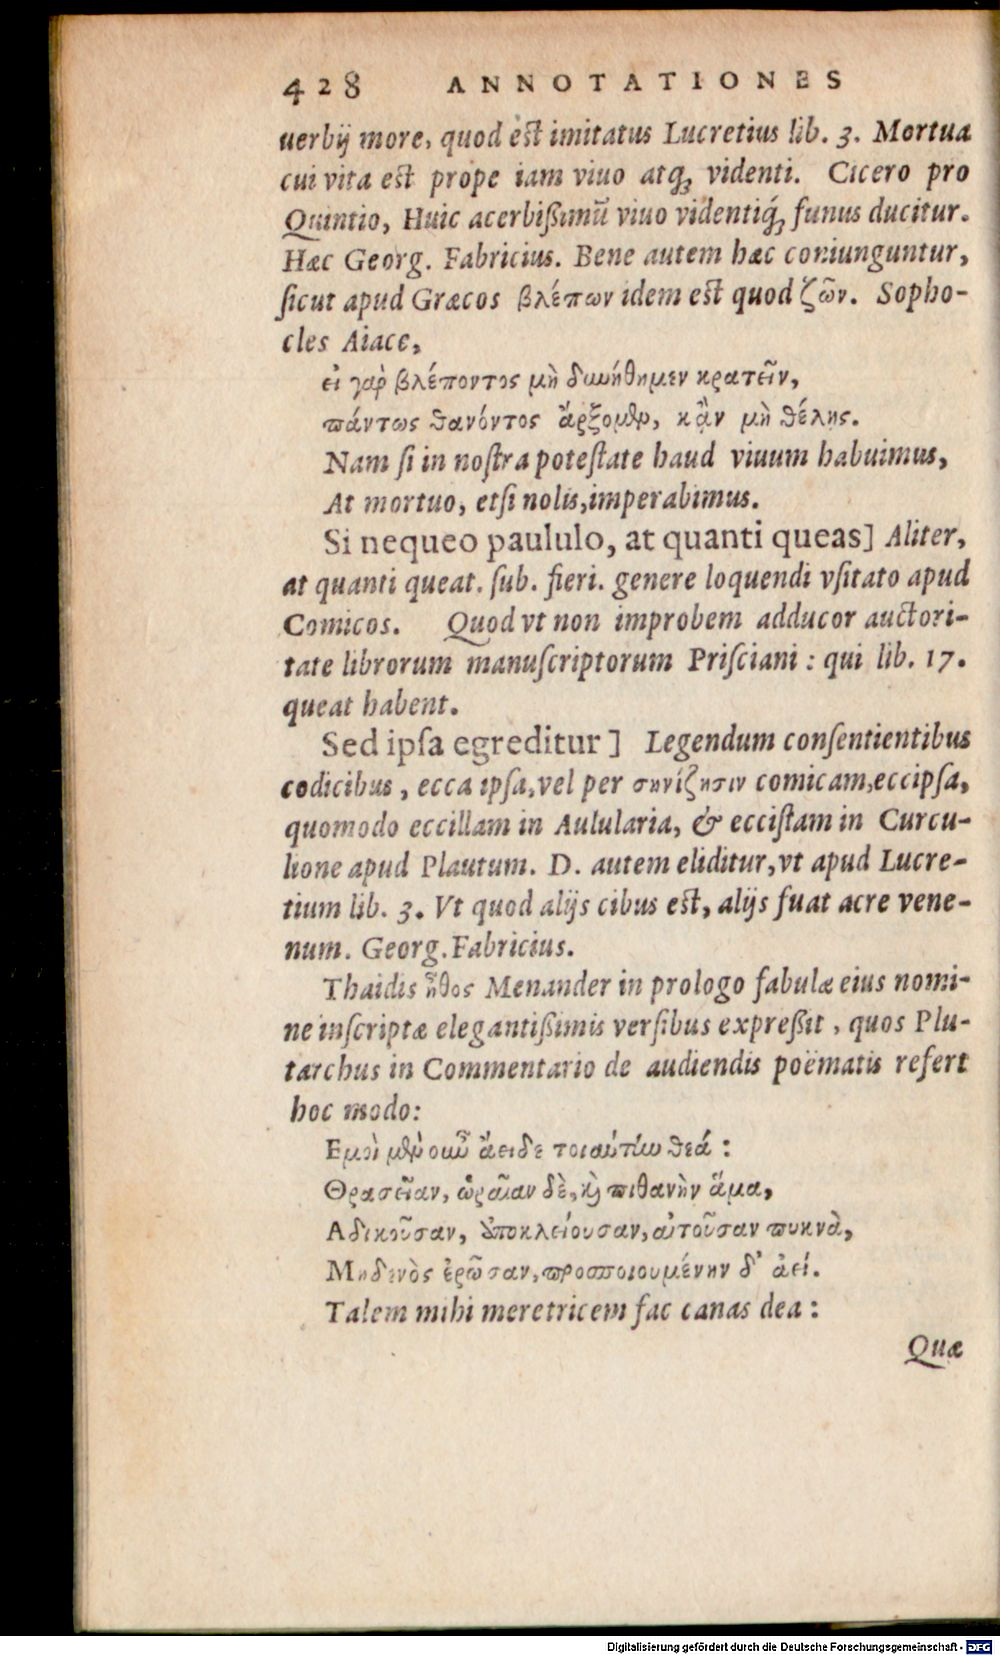 428 ANNOTATIONES
uerbij more, quod est imitatus Lucretius lib. 3. Mortua
cui vita est prope iam viuo atq; videnti. Cicero pro
Quintio, Huic acerbißimũ viuo videntiq́; funus ducitur.
Hæc Georg. Fabricius. Bene autem hæc coniunguntur,
ſicut apud Græcos βλέπων idem est quod ζῶν. Sopho-
cles Aiace,
εἰ γὰρ βλέποντος μὴ δυνήθημεν κρατεῖν,
πάντως θανόντος ἄρξομεν, κἂν μὴ θέλῃς.
Nam ſi in noſtra poteſtate haud viuum habuimus,
At mortuo, etſi nolis, imperabimus.
Si nequeo paululo, at quanti queas] Aliter,
at quanti queat. ſub. fieri. genere loquendi vſitato apud
Comicos. Quod vt non improbem adducor auctori-
tate librorum manuſcriptorum Priſciani: qui lib. 17.
queat habent.
Sed ipſa egreditur] Legendum conſentientibus
codicibus, ecca ipſa, vel per σηνίζησιν comicam, eccipſa,
quomodo eccillam in Aulularia, & ecciſtam in Curcu-
lione apud Plautum. D. autem eliditur, vt apud Lucre-
tium lib. 3. Vt quod alijs cibus est, alijs fuat acre vene-
num. Georg. Fabricius.
Thaidis ἦθος Menander in prologo fabulæ eius nomi-
ne inſcriptæ elegantißimis verſibus expreßit, quos Plu-
tarchus in Commentario de audiendis poëmatis refert
hoc modo:
Εμοὶ μὲν οὖν ἄειδε τοιαύτην θεά:
Θρασεῖαν, ὡραίαν δὲ, καὶ πιθανὴν ἅμα,
Αδικοῦσαν, ἀποκλείουσαν, αἰτοῦσαν πυκνὰ,
Μηδενὸς ἐρῶσαν, προσποιουμένην δ' ἀεί.
Talem mihi meretricem fac canas dea:
Quæ
Digitalisierung gefördert durch die Deutsche Forschungsgemeinschaft - DFG